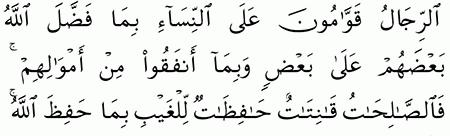 ٱلرِّجَالُ قَوَّٰمُونَ عَلَى ٱلنِّسَآءِ بِمَا فَضَّلَ ٱللَّهُ
بَعْضَهُمْ عَلَىٰ بَعْضٍ وَبِمَآ أَنفَقُوا۟ مِنْ أَمْوَٰلِهِمْ ۚ
فَٱلصَّٰلِحَٰتُ قَٰنِتَٰتٌ حَٰفِظَٰتٌ لِّلْغَيْبِ بِمَا حَفِظَ ٱللَّهُ ۚ